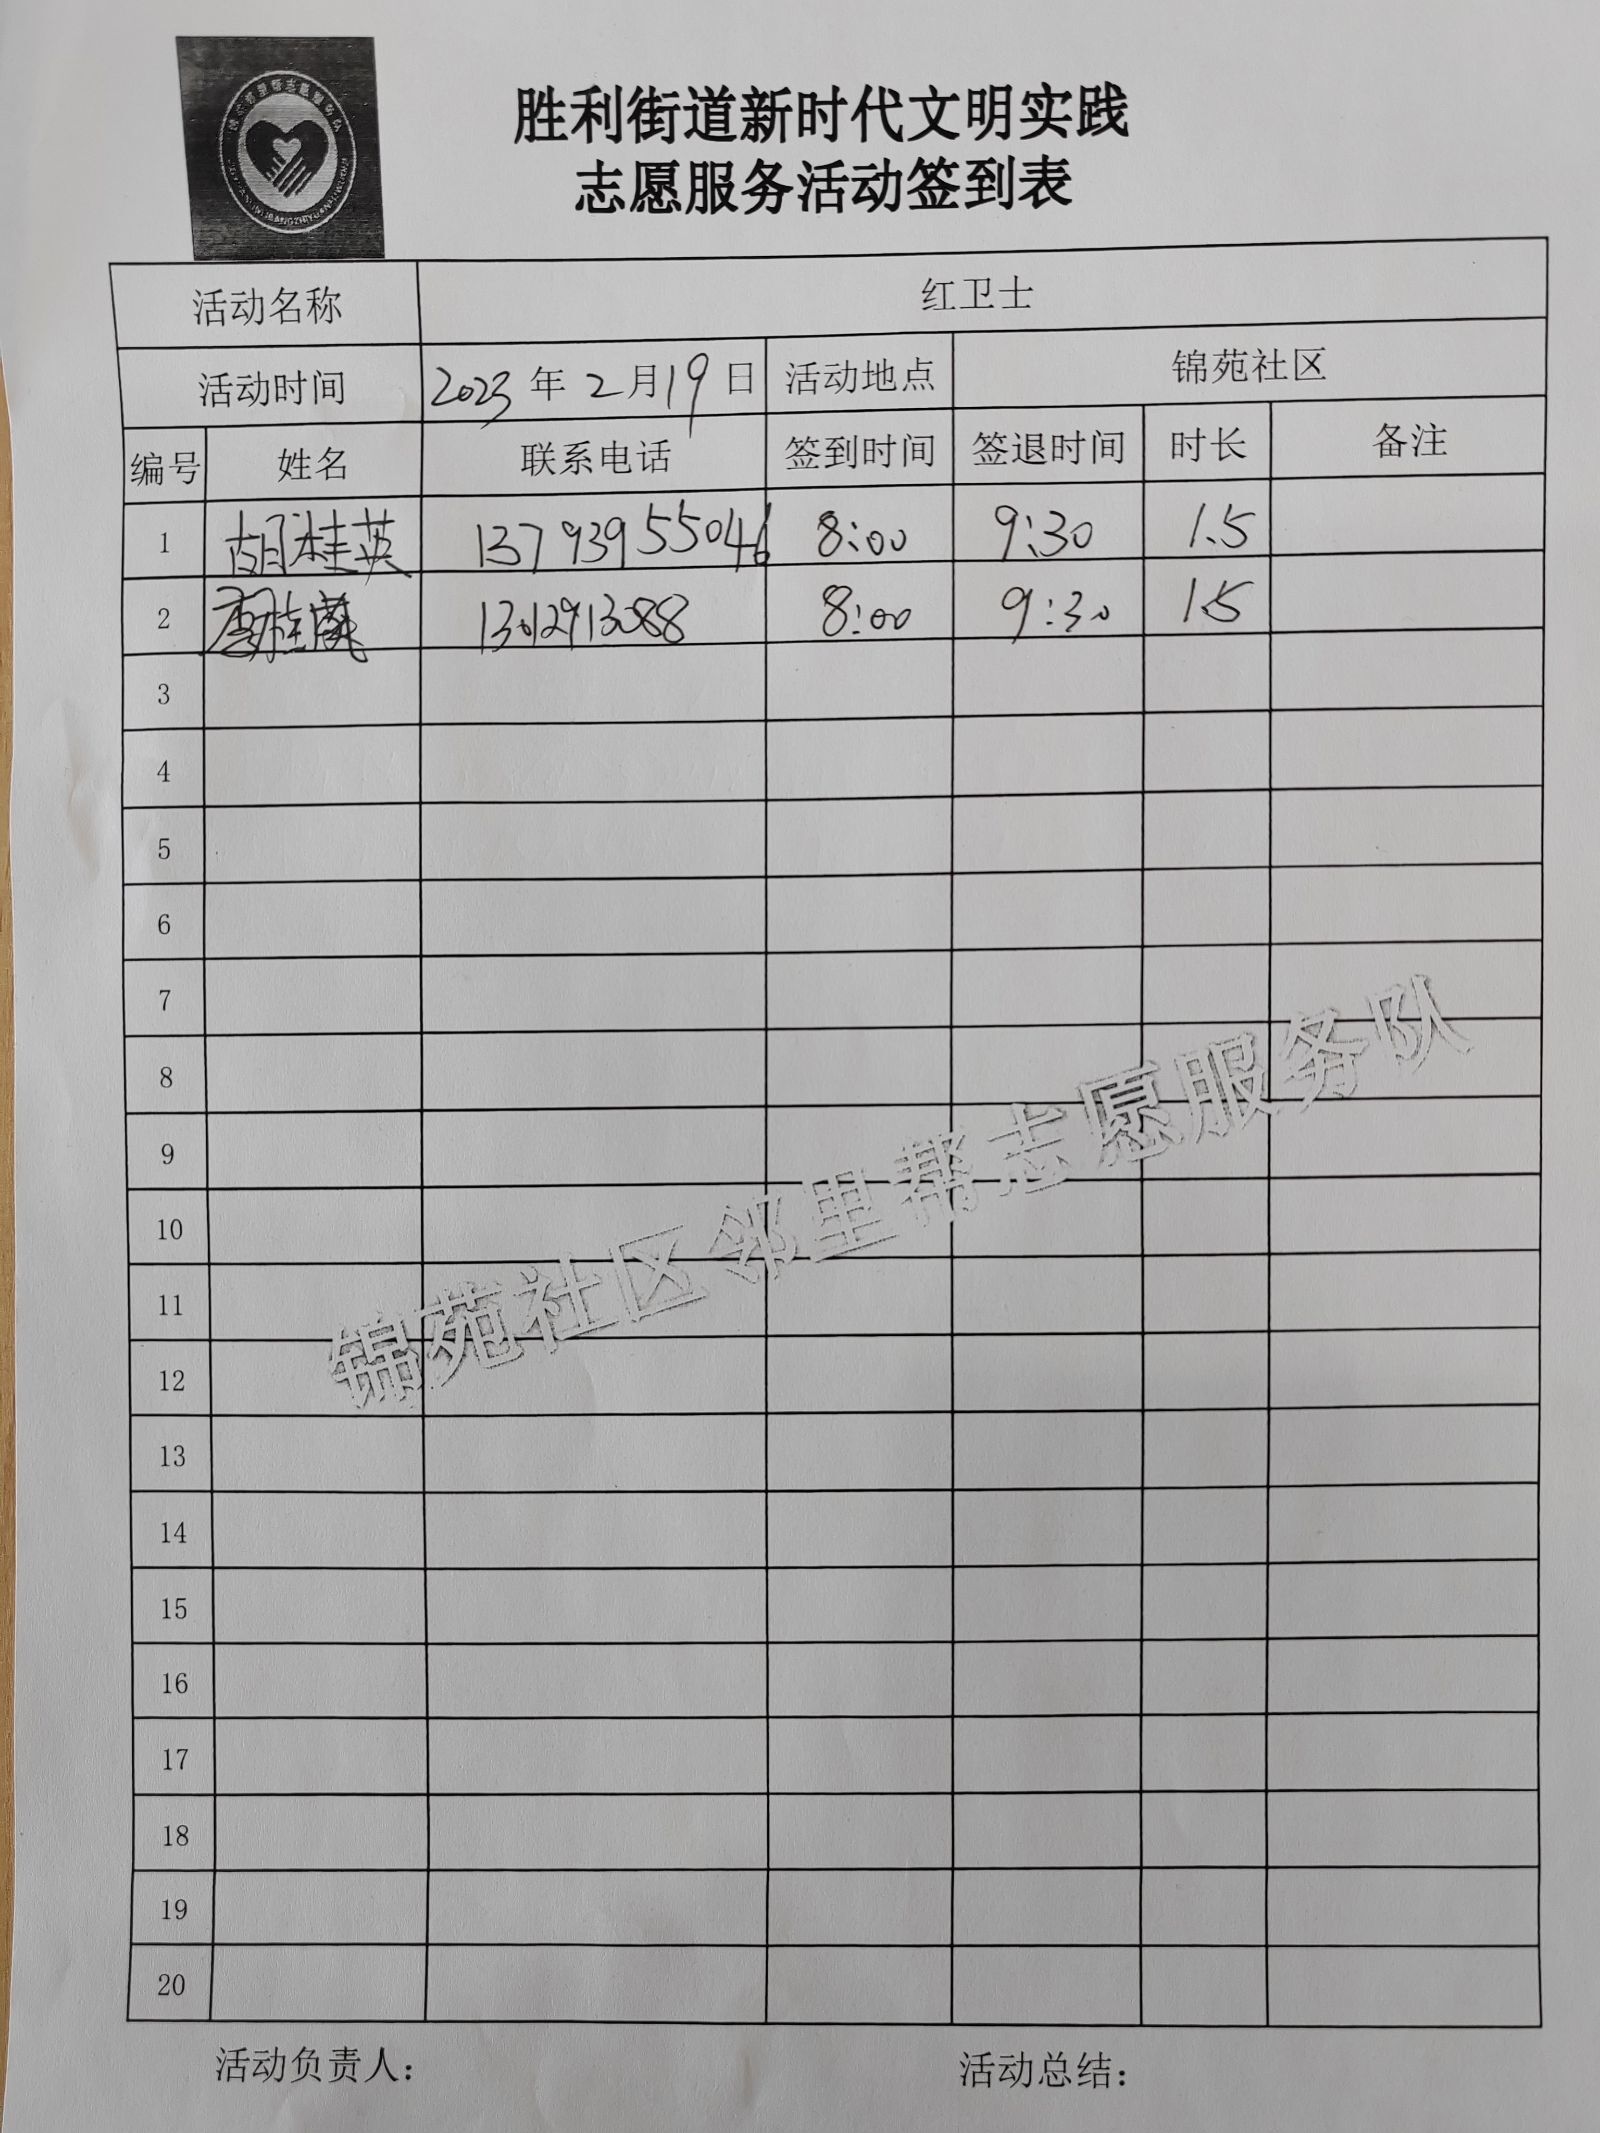 胜利街道新时代文明实践
志愿服务活动签到表
活动名称 红卫士
活动时间 2023年2月19日 活动地点 锦苑社区
编号 姓名 联系电话 签到时间 签退时间 时长 备注
1 胡桂英 13793955046 8:00 9:30 1.5
2 8:00 9:30 1.5
3
4
5
6
7
8
9
10
11
12
13
14
15
16
17
18
19
20
锦苑社区邻里帮志愿服务队
活动负责人: 活动总结: